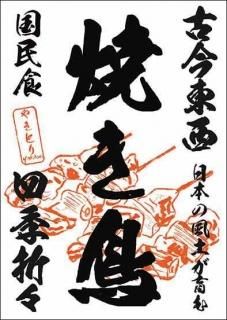 古今東西
日本の風土が育む
焼き鳥
国民食
やきとり
四季折々